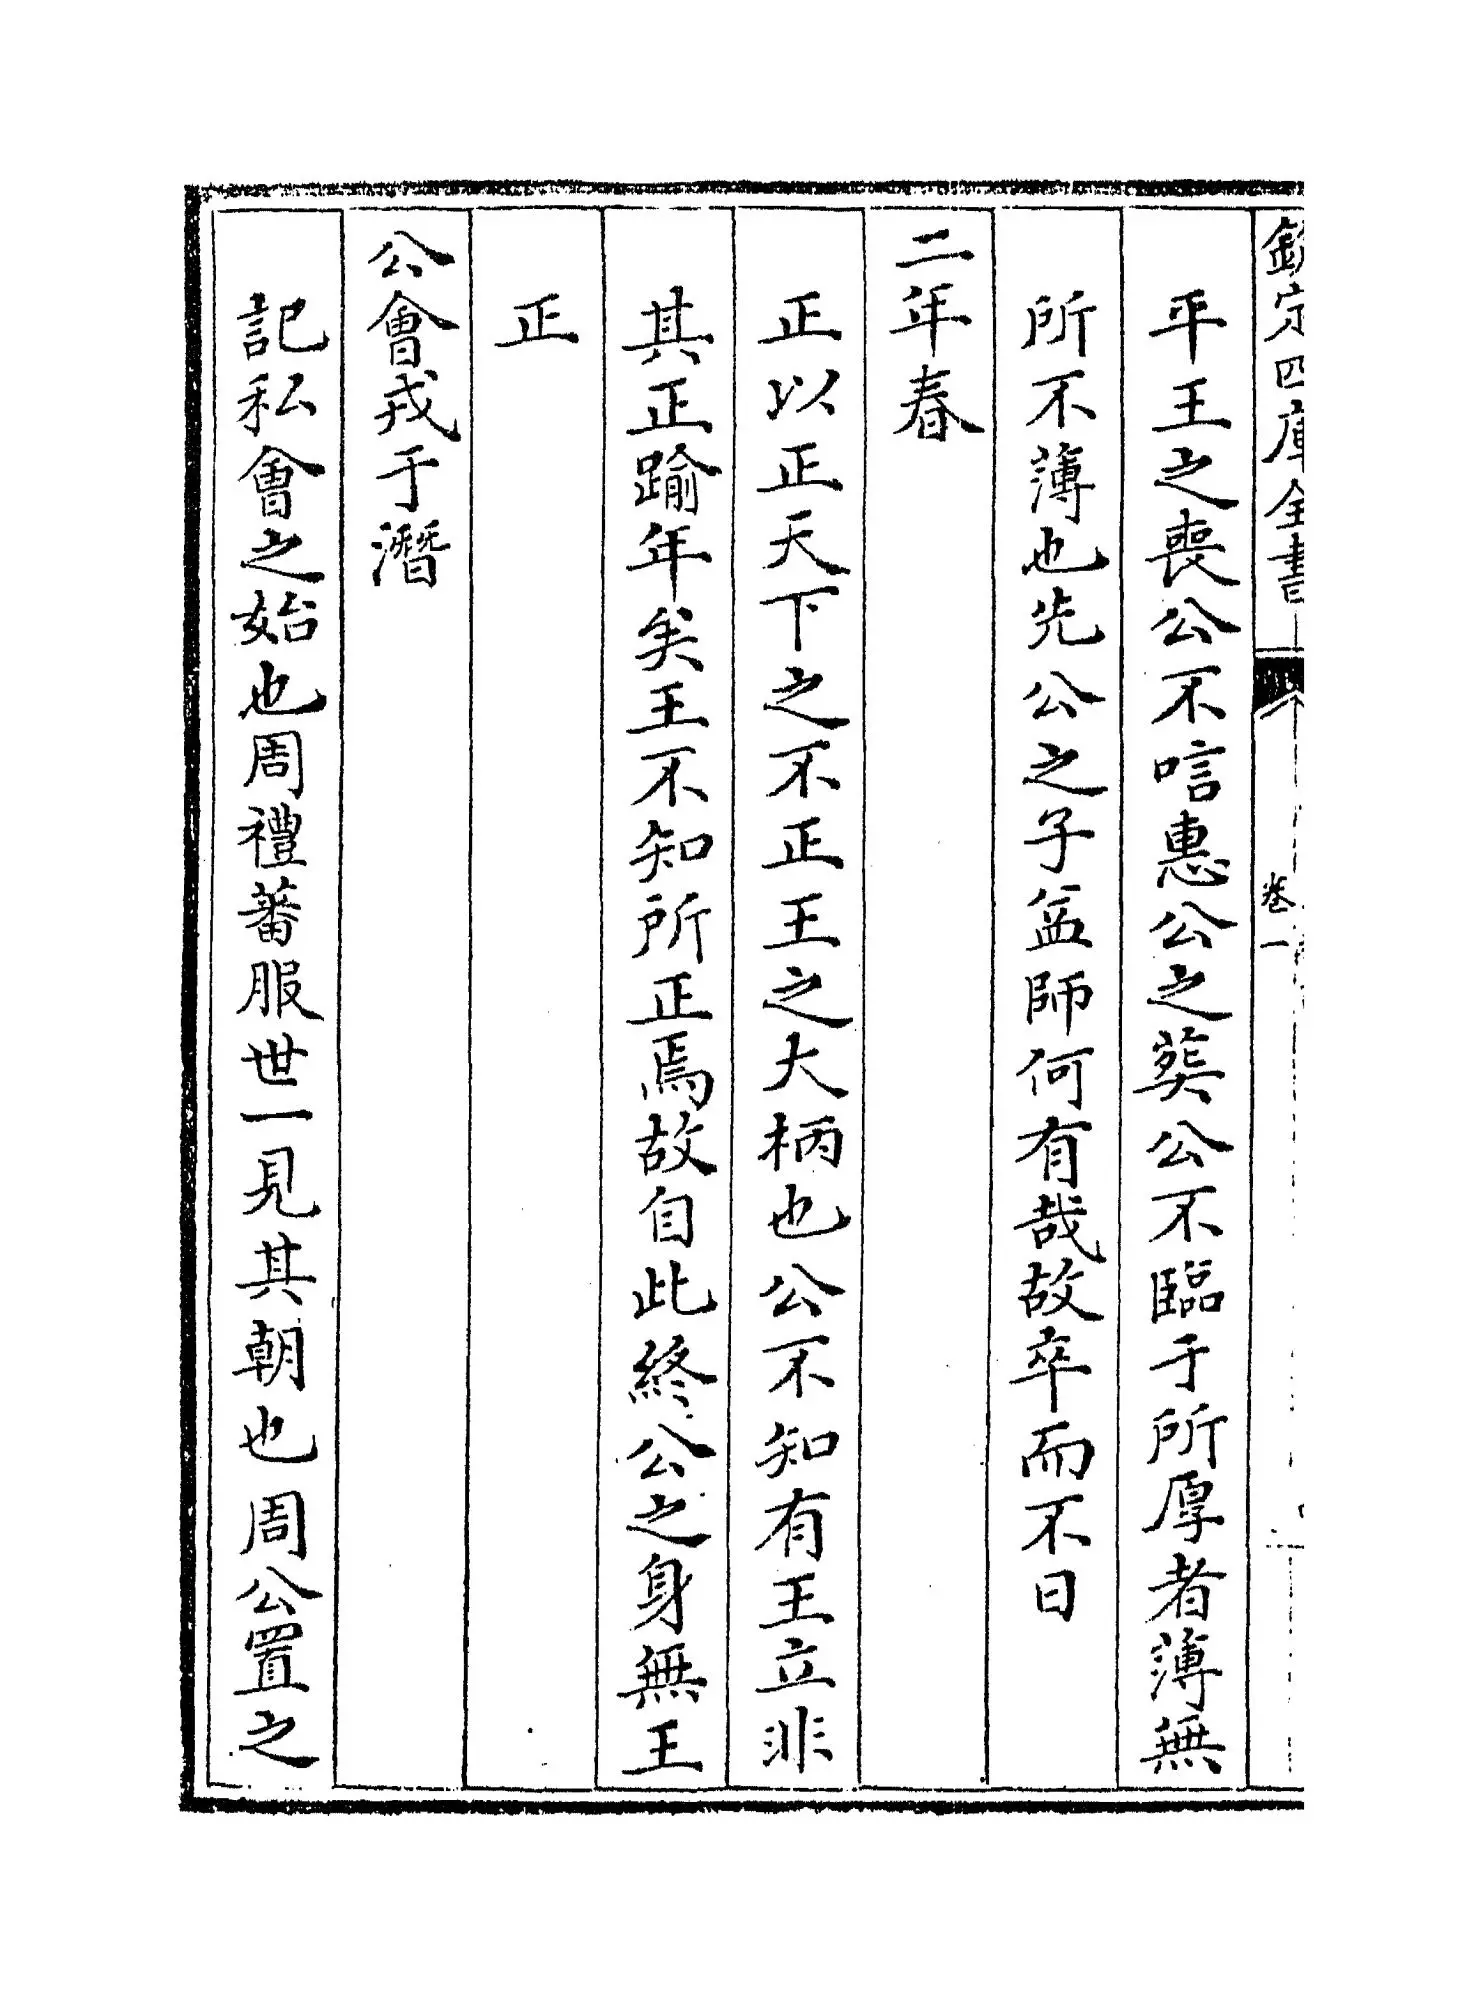 欽定四庫全書
卷一
平王之喪公不唁惠公之葬公不臨于所厚者薄無
所不薄也先公之子益師何有哉故卒而不日
二年春
正以正天下之不正王之大柄也公不知有王立非
其正踰年矣王不知所正焉故自此終公之身無王
正
公會戎于潛
記私會之始也周禮蕃服世一見其朝也周公置之